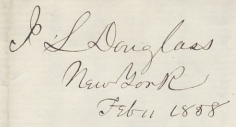 J L Douglass
New York
Feb 11 1888